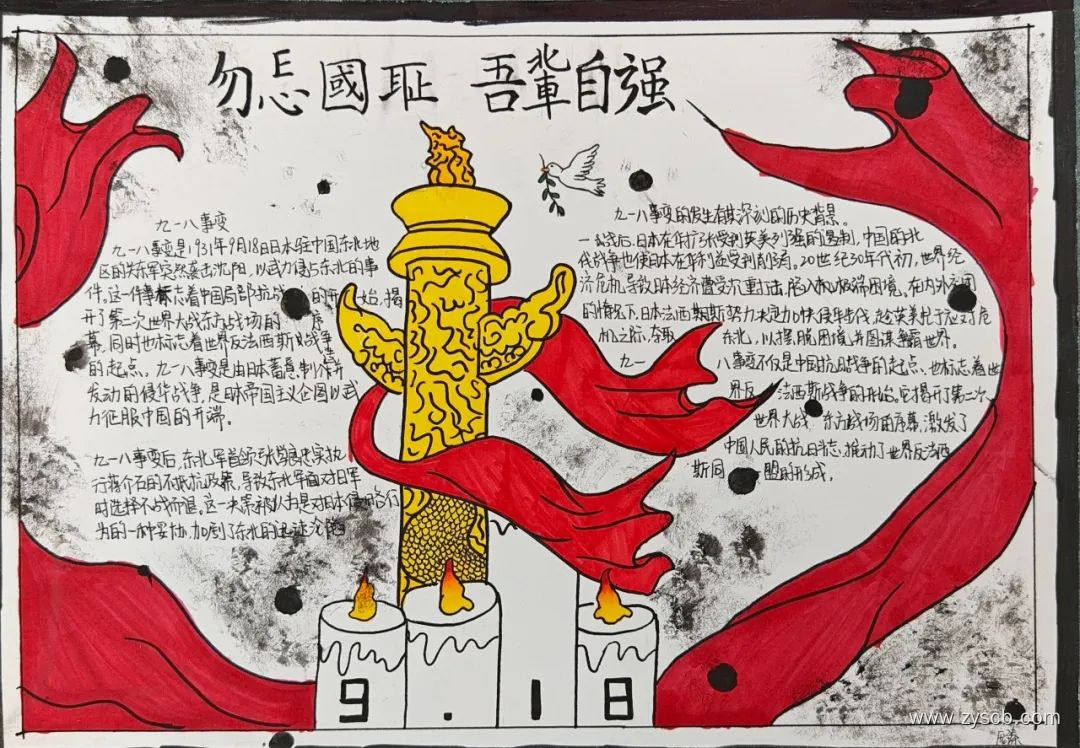 勿忘國耻 吾輩自强
九一八事变
九一八事变是1931年9月18日日本驻中国东北地
区的关东军突然袭击沈阳,以武力侵占东北的事
件。这一件事标志着中国局部抗战的开始,揭
开了第二次世界大战东方战场的序
幕,同时也标志着世界反法西斯战争
的起点。九一八事变是由日本蓄意制作并
发动的侵华战争,是日本帝国主义企图以武
力征服中国的开端。
九一八事变后,东北军首领张学良忠实执
行蒋介石的不抵抗政策,导致东北军面对日军
时选择不战而退。这一决策被认为是对日本侵略行
为的一种妥协,加剧了东北的迅速沦陷
九一八事变的发生有其深刻的历史背景。
一战后,日本在华扩张受到英美列强的遏制,中国的北
伐战争也使日本在华利益受到削弱。20世纪30年代初,世界经
济危机导致日本经济遭受沉重打击,陷入极端困境。在内外交困
的情况下,日本法西斯势力决定加快侵华步伐,趁英美忙于应对危
机之际,夺取东北,以摆脱困境并图谋争霸世界。
九一八事变不仅是中国抗日战争的起点,也标志着世
界反法西斯战争的开始。它揭开了第二次
世界大战东方战场的序幕,激发了
中国人民的抗日斗志,推动了世界反法西
斯同盟的形成。
9.18
www.zyscb.com